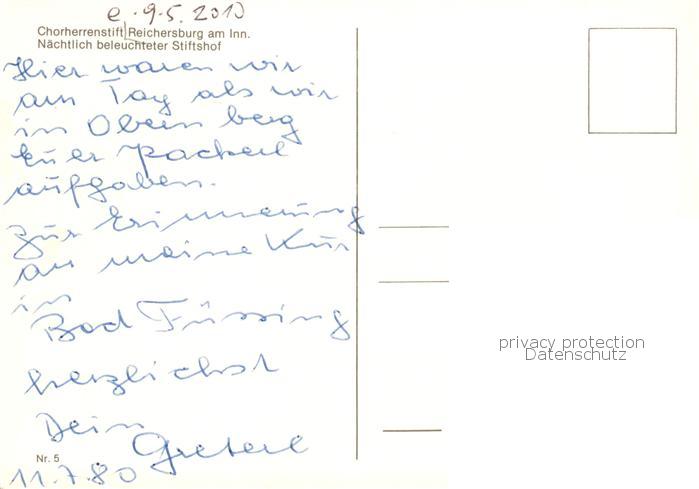 e. 9.5.2010
Chorherrenstift Reichersburg am Inn.
Nächtlich beleuchteter Stiftshof
Hier waren wir
am Tag als wir
in Obernberg
Euer Packerl
aufgaben.
Zur Erinnerung
an meine Kur
in
Bad Füssing
herzlichst
Dein
Greterl
Nr. 5
11.7.80
privacy protection
Datenschutz